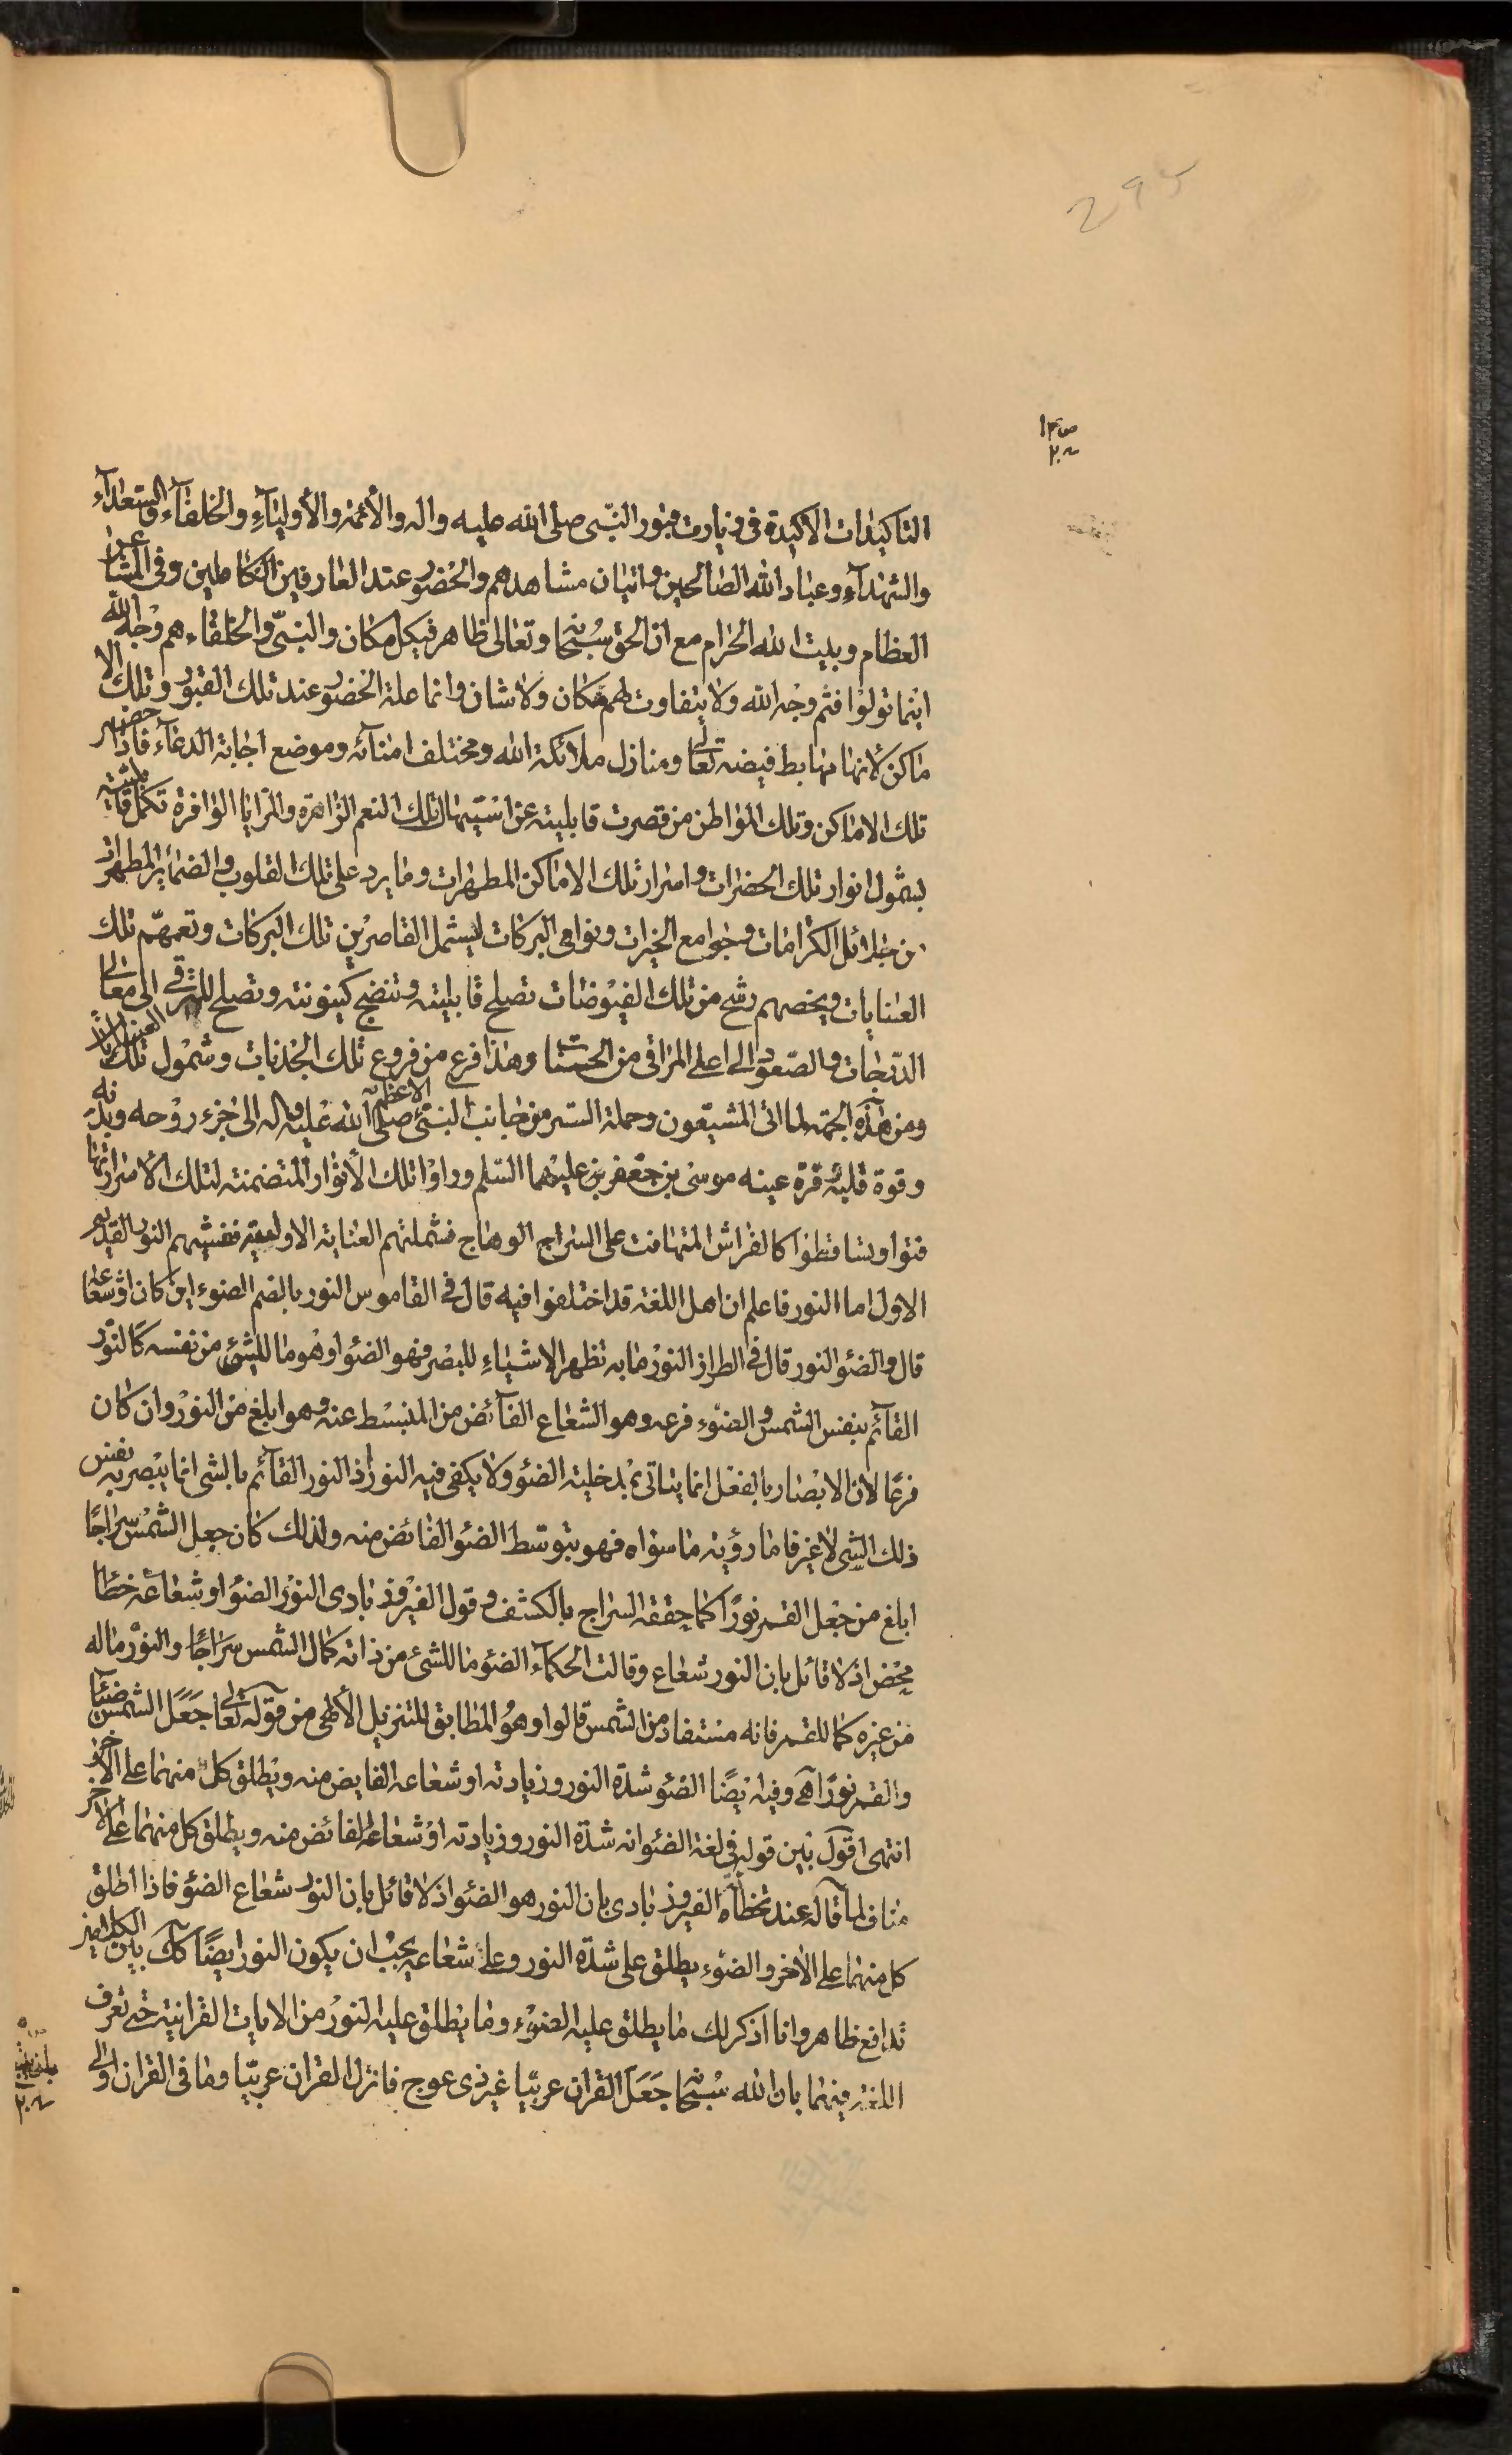 295
التاكيدات الاكيدة فى زيارت قبور النّبى صلى الله عليه واله والأئمة والأولياء والخلفآء والسعدآء
والشهدآء وعباد الله الصالحين واتيان مشاهدهم والحضور عند العارفين الكاملين وفى المشاعر
العظام وبيت الله الحرام مع ان الحق سُبحانه وتعالى ظاهر فيكل مكان والنبىّ والخلفاء هم وجْه اللّه
اينما تولّوا فثم وجْه الله ولا يتفاوت لهم مكان ولا شان وانما علة الحضور عند تلك القبور وتلك الا
ماكن لأنها مهابط فيضه تعالى ومنازل ملائكة الله ومختلف امنائه وموضع اجابة الدعآء فاذا حضر
تلك الاماكن وتلك المواطن من قصرت قابليته عن استيهال تلك النعم الزاهرة والمزايا الوافرة تكمل قابليّته
بشمول انوار تلك الحضرات واسرار تلك الاماكن المطهرات وما يرد على تلك القلوب والضمائر المطهرات
من جلائل الكرامات وجوامع الخيرات ونوامى البركات ليشمل القاصرين تلك البركات وتعمهّم تلك
العنايات ويخصهم رشح من تلك الفيوضات تصلح قابليته وتنضج كينونته وتصلح للترقى الى معالى
الدّرجات والصّعود الى اعلى المراقى من الحسنات وهذا فرع من فروع تلك الجذبات وشمول تلك العنايات
ومن هذه الجهة لما اتى المشيّعون وحملة الستر من جانب النبىّ الاعظم صلى الله عليه واله الى جزء روْحه وبدنه
وقوة قلبه وقرة عينه موسى بن جعفر بن عليهما السّلم وراوْا تلك الأنوار المتضمنة لتلك الاسرار
فتواوتسا قطوا كالفراش المتهافت على السراج الوهاج فشملتهم العناية الاولية فغشيهم النور القديم
الاول اما النور فاعلم ان اهل اللغة قد اختلفوا فيه قال فى القاموس النور بالضم الضوء اين كان اوْ شعاعه
قال والضوْ النور قال فى الطراز النورْ ما به تظهر الاشياء للبصر فهو الضوْ او هُو ما للشىء من نفسه كالنّور
القآئم بنفس الشمس والضوْء فرعه وهو الشعاع الفآئض من المنبسط عنه وهو ابلغ من النوْر وان كان
فرعًا لان الابْصار بالفعْل انما يتاتى بمْدخلية الضوْ ولا يكفى فيه النور اذ النور القآئم بالشى انما يبْصر به نفس
ذلك الشى لا غير فاما رؤية ما سواه فهو بتوسّط الضوْ الفائض منه ولذلك كان جعل الشمْس سراجًا
ابلغ من جعْل القمر نورًا كما حققه السراج بالكشف وقول الفيْروز بادى النوْر الضوْ او شعاعه خطا
محْض اذ لا قائل بان النور شعاع وقالت الحكمآء الضوْ ما للشئ من ذاته كمال الشمس سراجًا والنوْر ماله
من غيره كما للقمر فانه مستفاد من الشمس قالوا وهُو المطابق للتنزيل الألهى من قوله تعالى جَعَل الشمس ضيئا
والقمر نورًا آهـ وفيه ايْضًا الضوْ شدّة النور وزيادته او شعاعه الفايض منه ويطلق كلّ منهما على الاخر
انتهى اقول بين قوله فى لغة الضوْ انه شدّة النور وزيادته اوْ شعاعه الفائض منه ويطلق كل منهما على الاخر
مناف لما قاله عند تخطآه الفيروز بادى بان النور هو الضوْ اذ لا قائل بان النور شعاع الضوْ فاذا اطلق
كل منهما على الاخر والضوْء يطلق على شدّة النور وعلى شعاعه يجبْ ان يكون النور ايضًا كك بين الكلامين
تدافع ظاهر وانا اذكر لك ما يطلق عليه الضوْء وما يطلق عليه النورْ من الايات القرانية حتى تعرف
اللغة منهما بان الله سُبْحانه جَعَل القران عربيّا غير ذى عوج فانزل القران عربيّا وما فى القران اولى